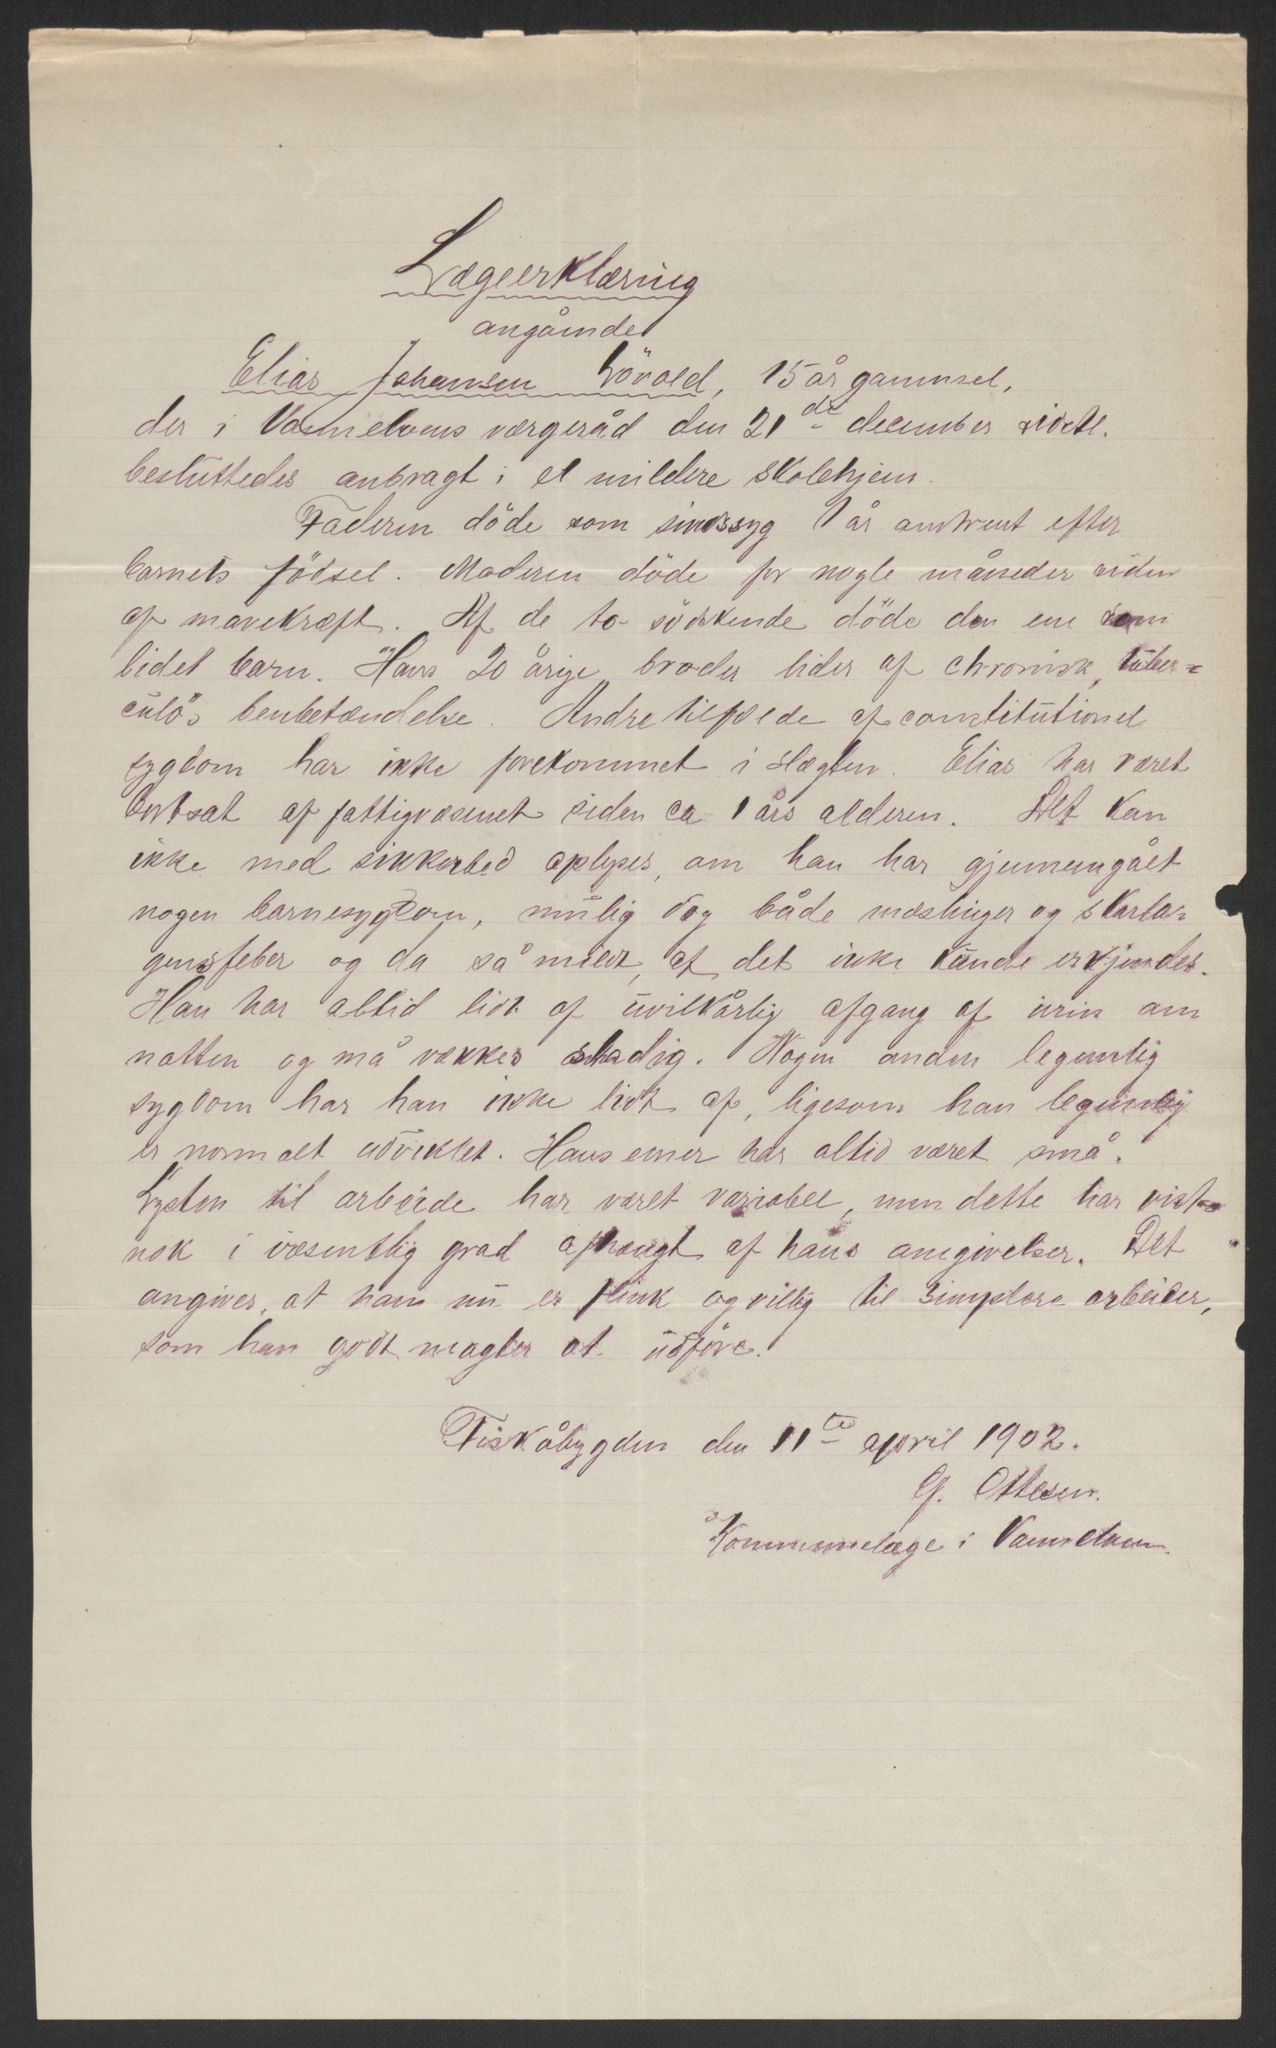 Lægeerklæring
angående
Elias Johansen Lövold, 15 år gammel,
der i Vannelvens værgeråd den 21de december sidstl.
besluttedes anbragt i et mildere skolehjem.
Faderen döde som sindssyg 1 år omtrent efter
barnets födsel. Moderen döde for nogle måneder siden
af mavekræft. Af de to södskende döde den ene som
lidet barn. Hans 20 årige broder lider af chronisk, tuber=
culös benbetændelse. Andre tilfælde af constitutionel
sygdom har ikke forekommet i slægten. Elias har været
bortsat af fattigvæsenet siden ca 1 års alderen. Det kan
ikke med sikkerhed oplyses, om han har gjennemgået
nogen barnesygdom, mulig dog både mæslinger og skarla-
gensfeber og da så mildt, at det ikke kunde erkjendes.
Han har altid lidt af uvilkårlig afgang af urin om
natten og må vækkes stadig. Nogen anden legemlig
sygdom har han ikke lidt af, ligesom han legemlig
er normalt udviklet. Hans evner har altid været små.
Lysten til arbeide har været variabel, men dette har vist-
nok i væsentlig grad afhængt af hans omgivelser. Det
angives, at han nu er flink og villig til simplere arbeider,
som han godt magter at udföre.
Fiskåbygden den 11te april 1902.
G. Ottesen.
Kommunelæge i Vannelven.